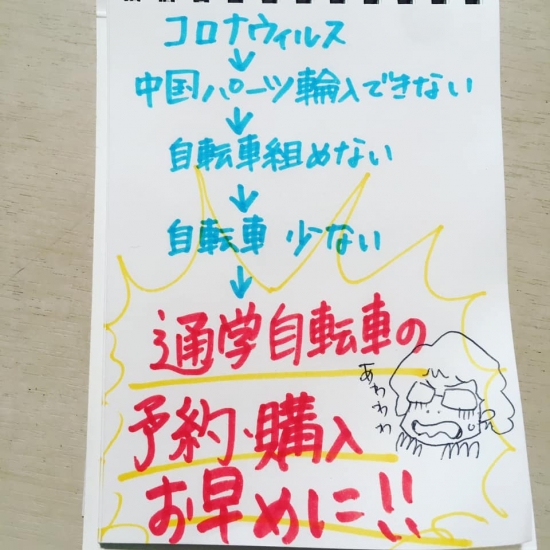 コロナウィルス
↓
中国パーツ輪入できない
↓
自転車組めない
↓
自転車 少ない
↓
通学自転車の
あわわわ
予約・購入
お早めに!!